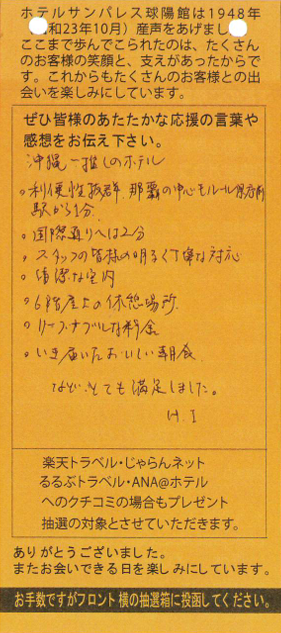 ホテルサンパレス球陽館は1948年
和23年10月）産声をあげまし
ここまで歩んでこられたのは、たくさん
のお客様の笑顔と、支えがあったからで
す。これからもたくさんのお客様との出
会いを楽しみにしています。
ぜひ皆様のあたたかな応援の言葉や
感想をお伝え下さい。
沖縄一推しのホテル
。利便性抜群 那覇の中心モルール県庁前
駅から1分
。国際通りへは2分
。スタッフの皆様の明るく丁寧な対応
。清潔な室内
。6階屋上の休憩場所
。リーズナブルな料金
。いき届いたおいしい朝食
などとても満足しました。
H.I
楽天トラベル・じゃらんネット
るるぶトラベル・ANA@ホテル
へのクチコミの場合もプレゼント
抽選の対象とさせていただきます。
ありがとうございました。
またお会いできる日を楽しみにしています。
お手数ですがフロント横の抽選箱に投函してください。